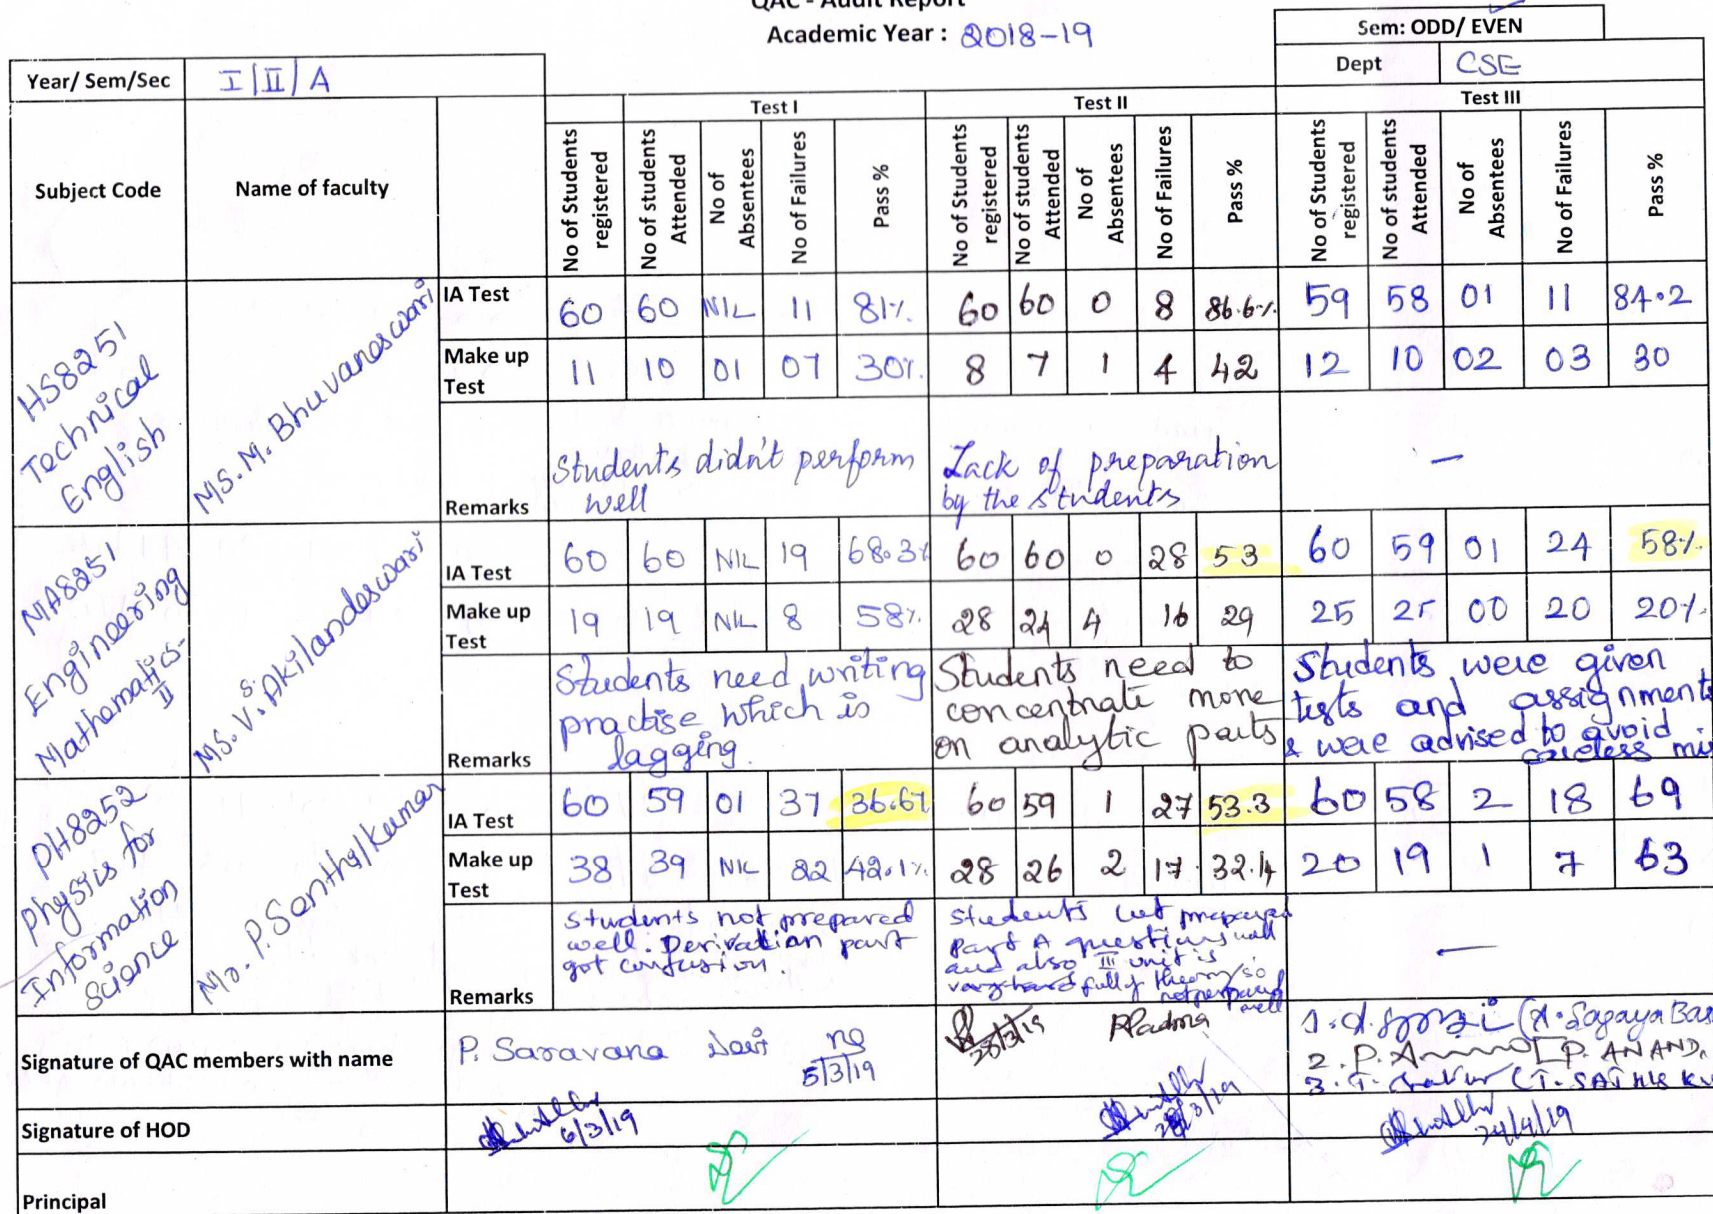 QAC - Audit Report
Academic Year : 2018-19
Sem: ODD/ EVEN
Dept CSE
Year/ Sem/Sec I/II/A
Test I Test II Test III
Subject Code Name of faculty
No of Students registered No of students Attended No of Absentees No of Failures Pass %
No of Students registered No of students Attended No of Absentees No of Failures Pass %
No of Students registered No of students Attended No of Absentees No of Failures Pass %
HS8251
Technical
English
Ms. M. Bhuvaneswari
IA Test 60 60 NIL 11 81% 60 60 0 8 86.6% 59 58 01 11 84.2
Make up Test 11 10 01 07 30% 8 7 1 4 42 12 10 02 03 30
Remarks
Students didn't perform
well
Lack of preparation
by the students
—
MA8251
Engineering
Mathematics-
II
Ms. V.S. Akilandeswari
IA Test 60 60 NIL 19 68.3% 60 60 0 28 53 60 59 01 24 58%
Make up Test 19 19 NIL 8 58% 28 24 4 16 29 25 25 00 20 20%
Remarks
Students need writing
practise which is
lagging.
Students need to
concentrate more
on analytic parts
Students were given
tests and assignments
& were advised to avoid
careless mis
PH8252
Physics for
Information
Science
Mr. P. Senthil Kumar
IA Test 60 59 01 37 36.67 60 59 1 27 53.3 60 58 2 18 69
Make up Test 38 39 NIL 22 42.1% 28 26 2 17 32.14 20 19 1 7 63
Remarks
Students not prepared
well. Derivation part
got confusion.
Students not prepared
part A questions well
and also III unit is
very hard fully theory so
not prepared
well
—
Signature of QAC members with name
P. Saravana Devi
5/3/19
25/3/19 Padma
1. (A. Sagaya Bas
2. P. Anand [P. ANAND,
3. (T. SATHIS KU
Signature of HOD
6/3/19
28/3/19
24/4/19
Principal